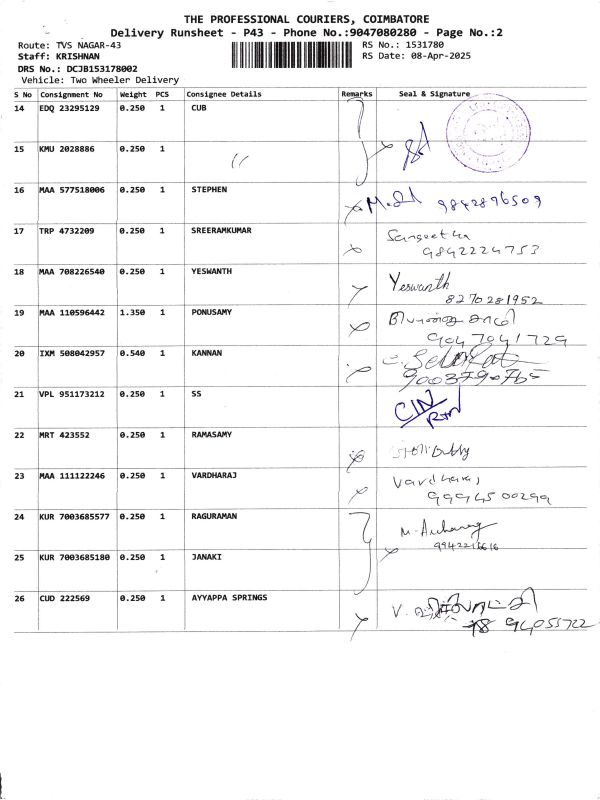 THE PROFESSIONAL COURIERS, COIMBATORE
Delivery Runsheet - P43 - Phone No.:9047080280 - Page No.:2
Route: TVS NAGAR-43 RS No.: 1531780
Staff: KRISHNAN RS Date: 08-Apr-2025
DRS No.: DCJB153178002
Vehicle: Two Wheeler Delivery
S No Consignment No Weight PCS Consignee Details Remarks Seal & Signature
14 EDQ 23295129 0.250 1 CUB
15 KMU 2028886 0.250 1 〃
16 MAA 577518006 0.250 1 STEPHEN 9842896509
17 TRP 4732209 0.250 1 SREERAMKUMAR Sangeetha
9842224753
18 MAA 708226540 0.250 1 YESWANTH Yeswanth
8270281952
19 MAA 110596442 1.350 1 PONUSAMY பொன்னு சாமி
9047041729
20 IXM 508042957 0.540 1 KANNAN
9003790765
21 VPL 951173212 0.250 1 SS CIN
RTN
22 MRT 423552 0.250 1 RAMASAMY
23 MAA 111122246 0.250 1 VARDHARAJ Vardharaj
9994500299
24 KUR 7003685577 0.250 1 RAGURAMAN
9942216616
25 KUR 7003685180 0.250 1 JANAKI
26 CUD 222569 0.250 1 AYYAPPA SPRINGS V.
94055722